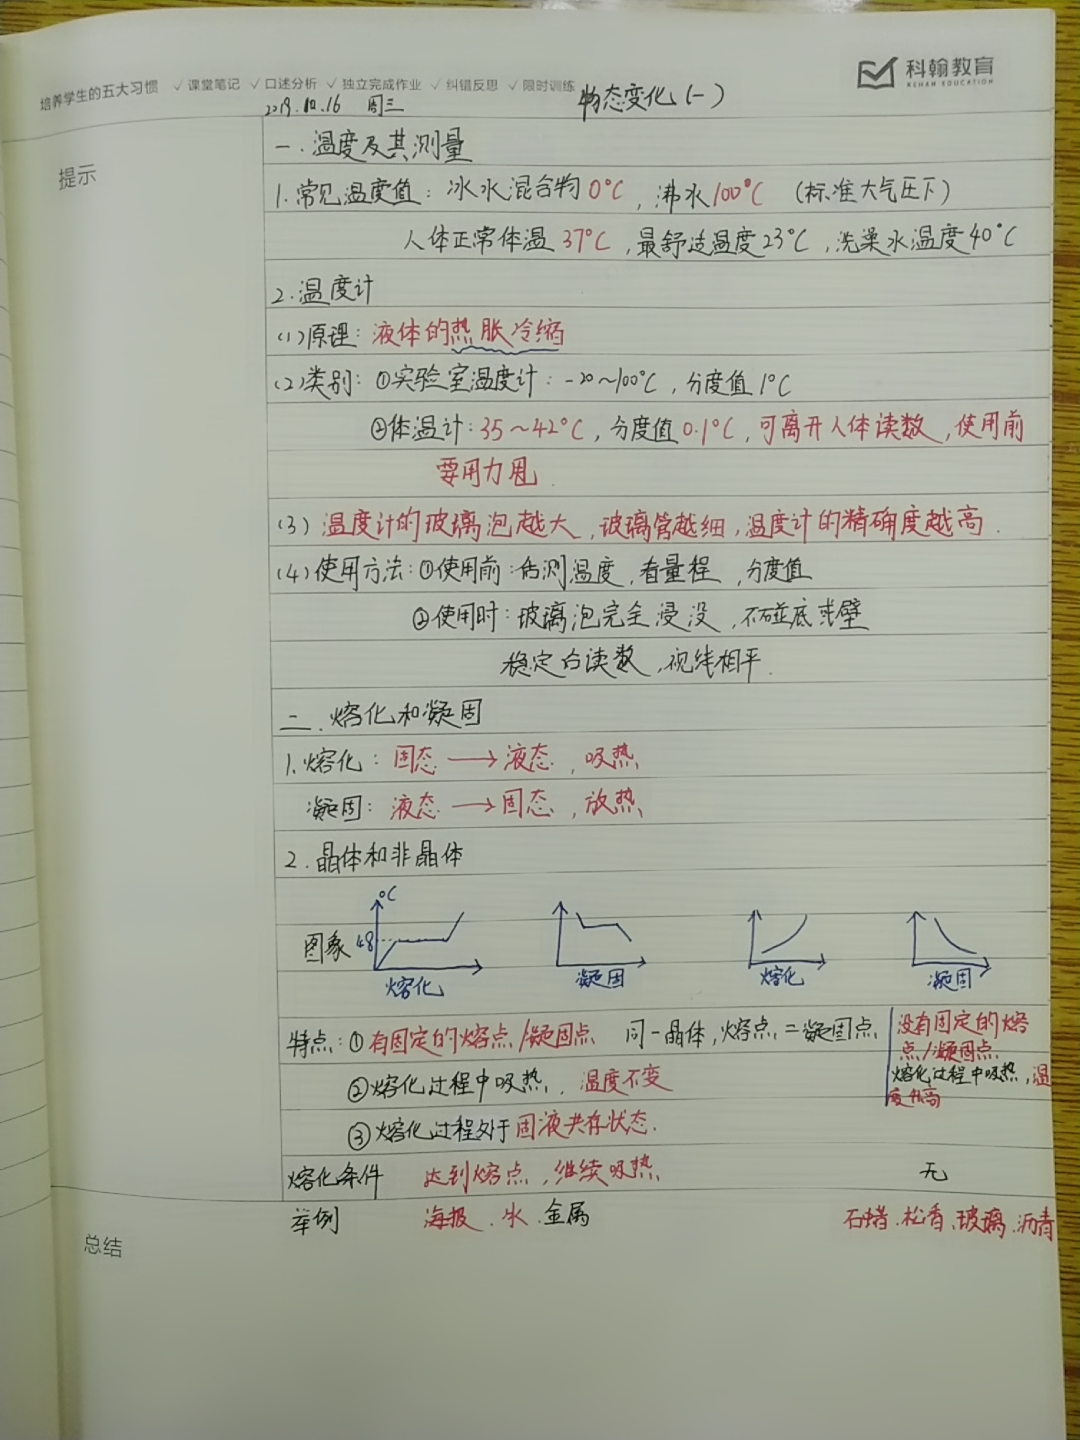 培养学生的五大习惯 ✓课堂笔记 ✓口述分析 ✓独立完成作业 ✓纠错反思 ✓限时训练
科翰教育
KEHAN EDUCATION
2019.10.16 周三 物态变化(一)
提示
一.温度及其测量
1.常见温度值：冰水混合物0°C，沸水100°C (标准大气压下)
人体正常体温37°C，最舒适温度23°C，洗澡水温度40°C
2.温度计
(1)原理：液体的热胀冷缩
(2)类别：①实验室温度计：-20~100°C，分度值1°C
②体温计：35~42°C，分度值0.1°C，可离开人体读数，使用前
要用力甩.
(3)温度计的玻璃泡越大，玻璃管越细，温度计的精确度越高.
(4)使用方法：①使用前：估测温度，看量程，分度值
②使用时：玻璃泡完全浸没，不碰底或壁
稳定后读数，视线相平.
二.熔化和凝固
1.熔化：固态→液态，吸热
凝固：液态→固态，放热
2.晶体和非晶体
°C
图象 48
熔化 凝固 熔化 凝固
特点：①有固定的熔点/凝固点 同一晶体，熔点=凝固点 没有固定的熔
点/凝固点
②熔化过程中吸热，温度不变 熔化过程中吸热，温
度升高
③熔化过程处于固液共存状态.
熔化条件 达到熔点，继续吸热 无
举例 海报、冰、金属 石蜡、松香、玻璃、沥青
总结